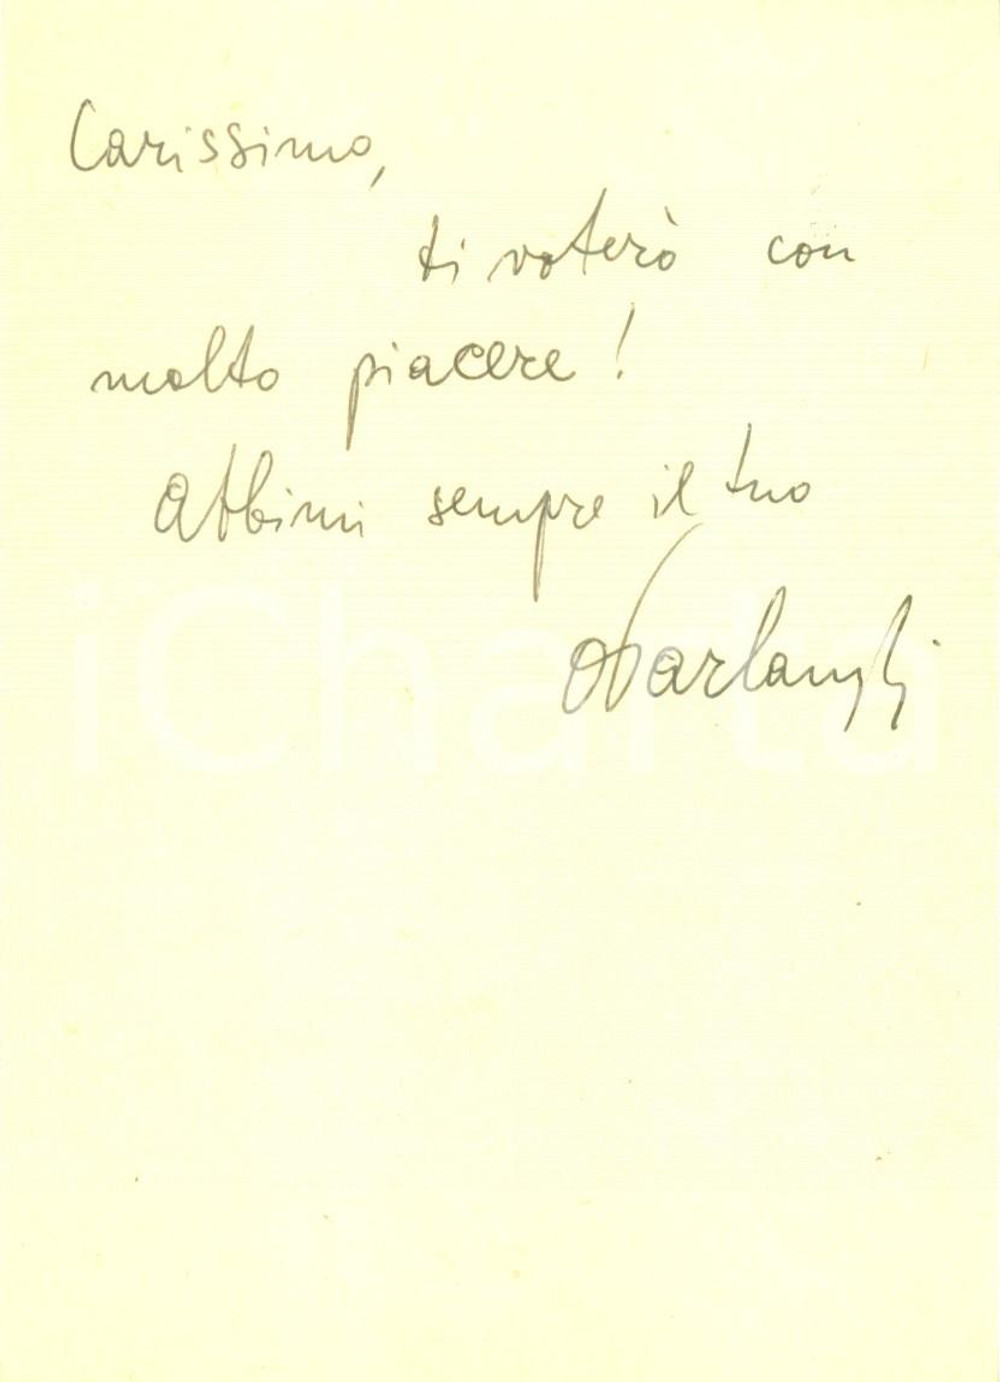 Carissimo,
ti voterò con
molto piacere!
Abbimi sempre il tuo
OParlangèli
iCharta